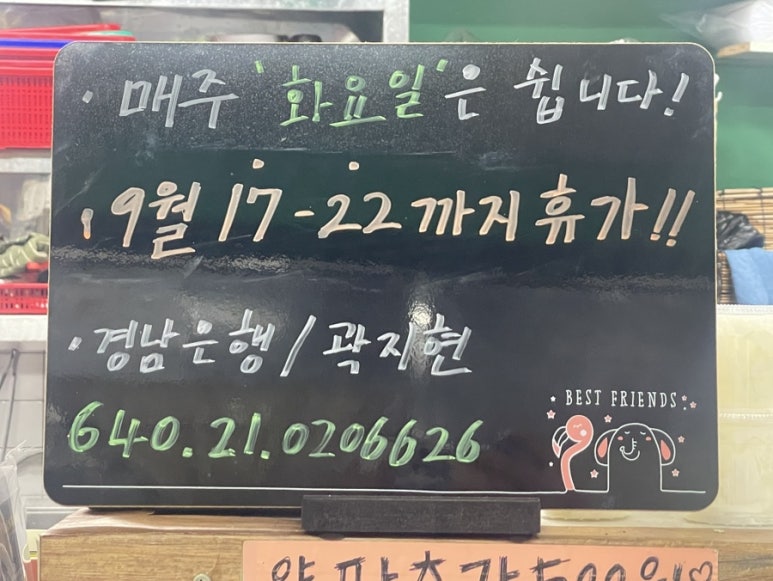 · 매주 '화요일'은 쉽니다!
· 9월 17-22까지 휴가!!
· 경남은행 / 곽지현
640.21.0206626
BEST FRIENDS
양파추가 500원♡